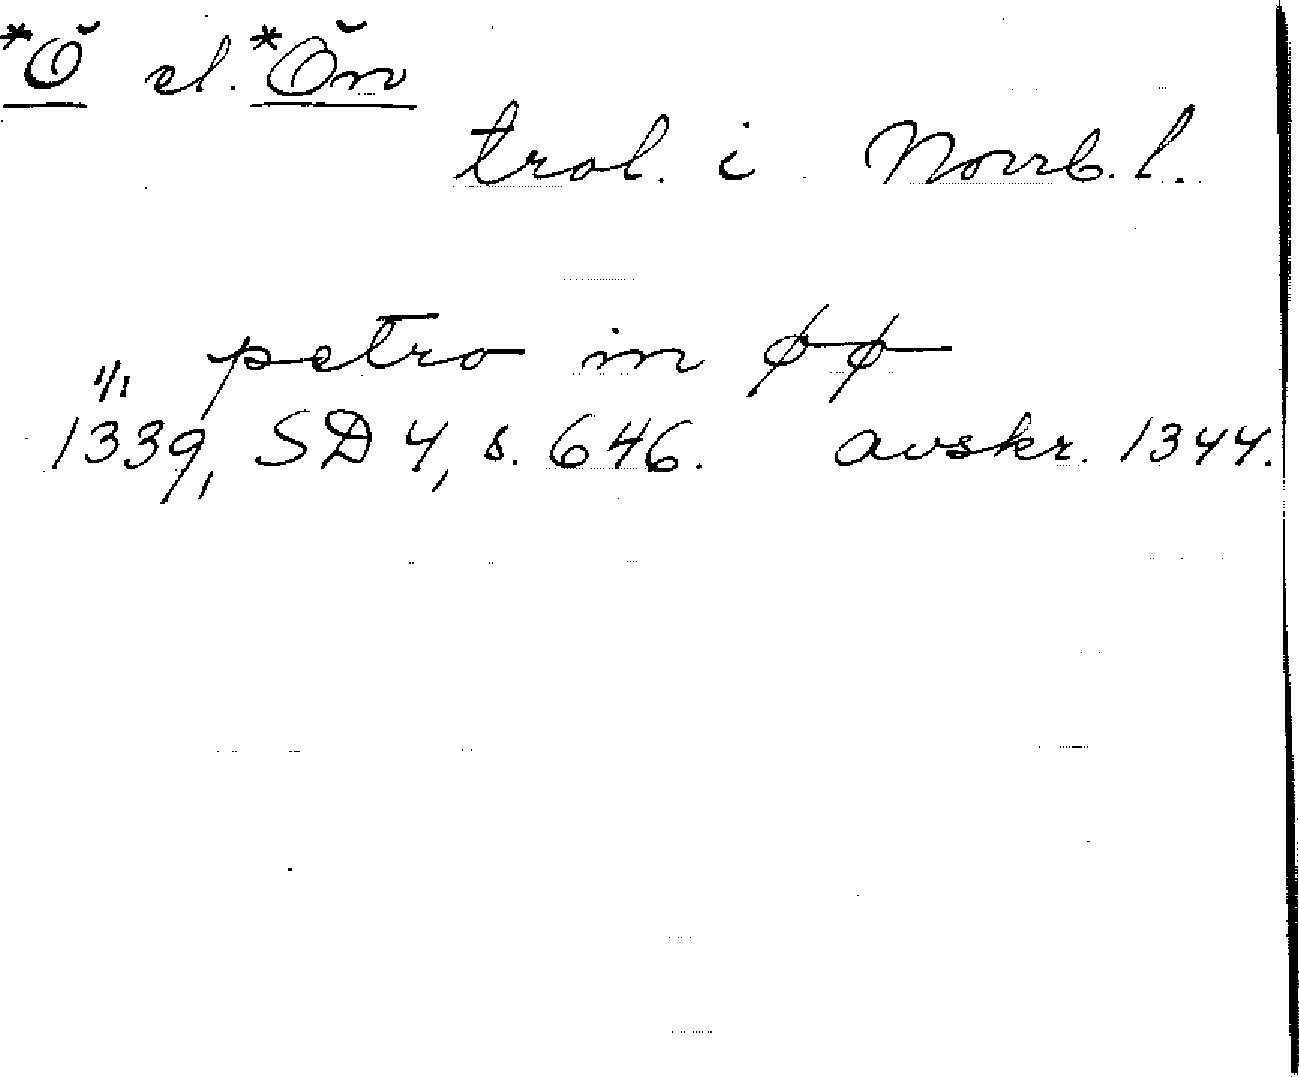 *Ö el. *Ön
trol. i Norrb. l.
petro in øø
1/1
1339, SD 4, s. 646. avskr. 1344.